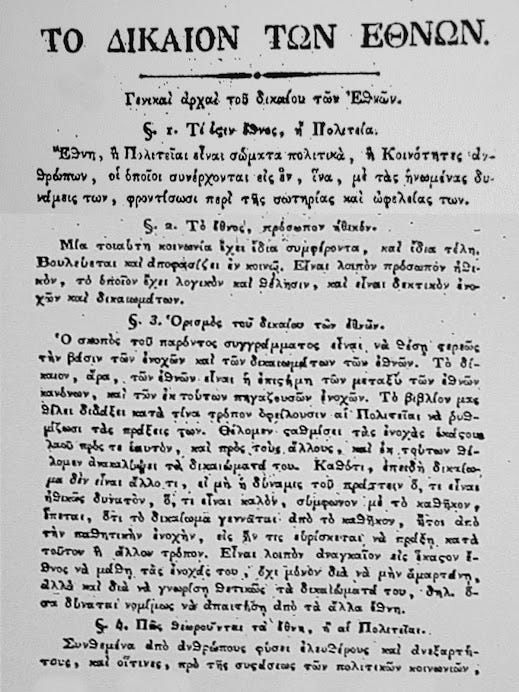 ΤΟ ΔΙΚΑΙΟΝ ΤΩΝ ΕΘΝΩΝ.
Γενικαὶ ἀρχαὶ τοῦ δικαίου τῶν Ἐθνῶν.
§. 1. Τί ἐςιν ἔθνος, ἢ Πολιτεία.
Ἔθνη, ἢ Πολιτεῖαι εἶναι σώματα πολιτικὰ, ἢ Κοινότητες ἀν-
θρώπων, οἱ ὁποῖοι συνέρχονται εἰς ἓν, ἵνα, μὲ τὰς ἡνωμένας δυ-
νάμεις των, φροντίσωσι περὶ τῆς σωτηρίας καὶ ὠφελείας των.
§. 2. Τὸ ἔθνος, πρόσωπον ἠθικόν.
Μία τοιαύτη κοινωνία ἔχει ἴδια συμφέροντα, καὶ ἴδια τέλη.
Βουλεύεται καὶ ἀποφασίζει ἐν κοινῷ. Εἶναι λοιπὸν πρόσωπον ἠθι-
κὸν, τὸ ὁποῖον ἔχει λογικὸν καὶ θέλησιν, καὶ εἶναι δεκτικὸν ἐνο-
χῶν καὶ δικαιωμάτων.
§. 3. Ὁρισμὸς τοῦ δικαίου τῶν ἐθνῶν.
Ὁ σκοπὸς τοῦ παρόντος συγγράμματος εἶναι νὰ θέσῃ ςερεῶς
τὴν βάσιν τῶν ἐνοχῶν καὶ τῶν δικαιωμάτων τῶν ἐθνῶν. Τὸ δί-
καιον, ἄρα, τῶν ἐθνῶν εἶναι ἡ ἐπιςήμη τῶν μεταξὺ τῶν ἐθνῶν
κανόνων, καὶ τῶν ἐκ τούτων πηγαζουσῶν ἐνοχῶν. Τὸ βιβλίον μας
θέλει διδάξει κατὰ τίνα τρόπον ὀφείλουσιν αἱ Πολιτεῖαι νὰ ῥυθ-
μίζωσι τὰς πράξεις των. Θέλομεν ςαθμίσει τὰς ἐνοχὰς ἑκάςου
λαοῦ πρός τε ἑαυτὸν, καὶ πρὸς τοὺς ἄλλους, καὶ ἐκ τούτων θέ-
λομεν ἀνακαλύψει τὰ δικαιώματά του. Καθότι, ἐπειδὴ δικαίω-
μα δὲν εἶναι ἄλλο τι, εἰ μὴ ἡ δύναμις τοῦ πράττειν ὅ, τι εἶναι
ἠθικῶς δυνατὸν, ὅ, τι εἶναι καλὸν, σύμφωνον μὲ τὸ καθῆκον,
ἕπεται, ὅτι τὸ δικαίωμα γεννᾶται ἀπὸ τὸ καθῆκον, ἤτοι ἀπὸ
τὴν παθητικὴν ἐνοχὴν, εἰς ἣν τις εὑρίσκεται νὰ πράξῃ κατὰ
τοῦτον ἢ ἄλλον τρόπον. Εἶναι λοιπὸν ἀναγκαῖον εἰς ἕκαςον ἔ-
θνος νὰ μάθῃ τὰς ἐνοχάς του, ὄχι μόνον διὰ νὰ μὴν ἁμαρτάνῃ,
ἀλλὰ καὶ διὰ νὰ γνωρίσῃ θετικῶς τὰ δικαιώματά του, δηλ. ὅ-
σα δύναται νομίμως νὰ ἀπαιτήσῃ ἀπὸ τὰ ἄλλα ἔθνη.
§. 4. Πῶς θεωροῦνται τὰ ἔθνη, ἢ αἱ Πολιτεῖαι.
Συνθεμένα ἀπὸ ἀνθρώπους φύσει ἐλευθέρους καὶ ἀνεξαρτή-
τους, καὶ οἵτινες, πρὸ τῆς συςάσεως τῶν πολιτικῶν κοινωνιῶν,